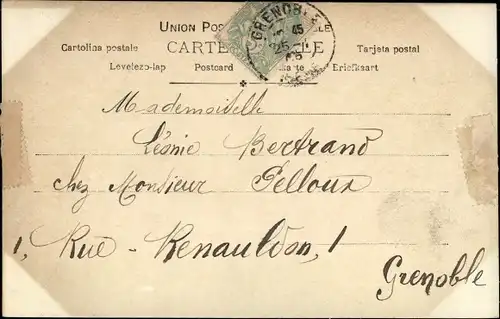 UNION POS
Cartolina postale CARTE LE Tarjeta postal
Levelezo-lap Postcard karte Briefkaart
GRENOBLE
Mademoiselle
Léonie Bertrand
chez Monsieur Pelloux
1, Rue - Renauldon, 1
Grenoble